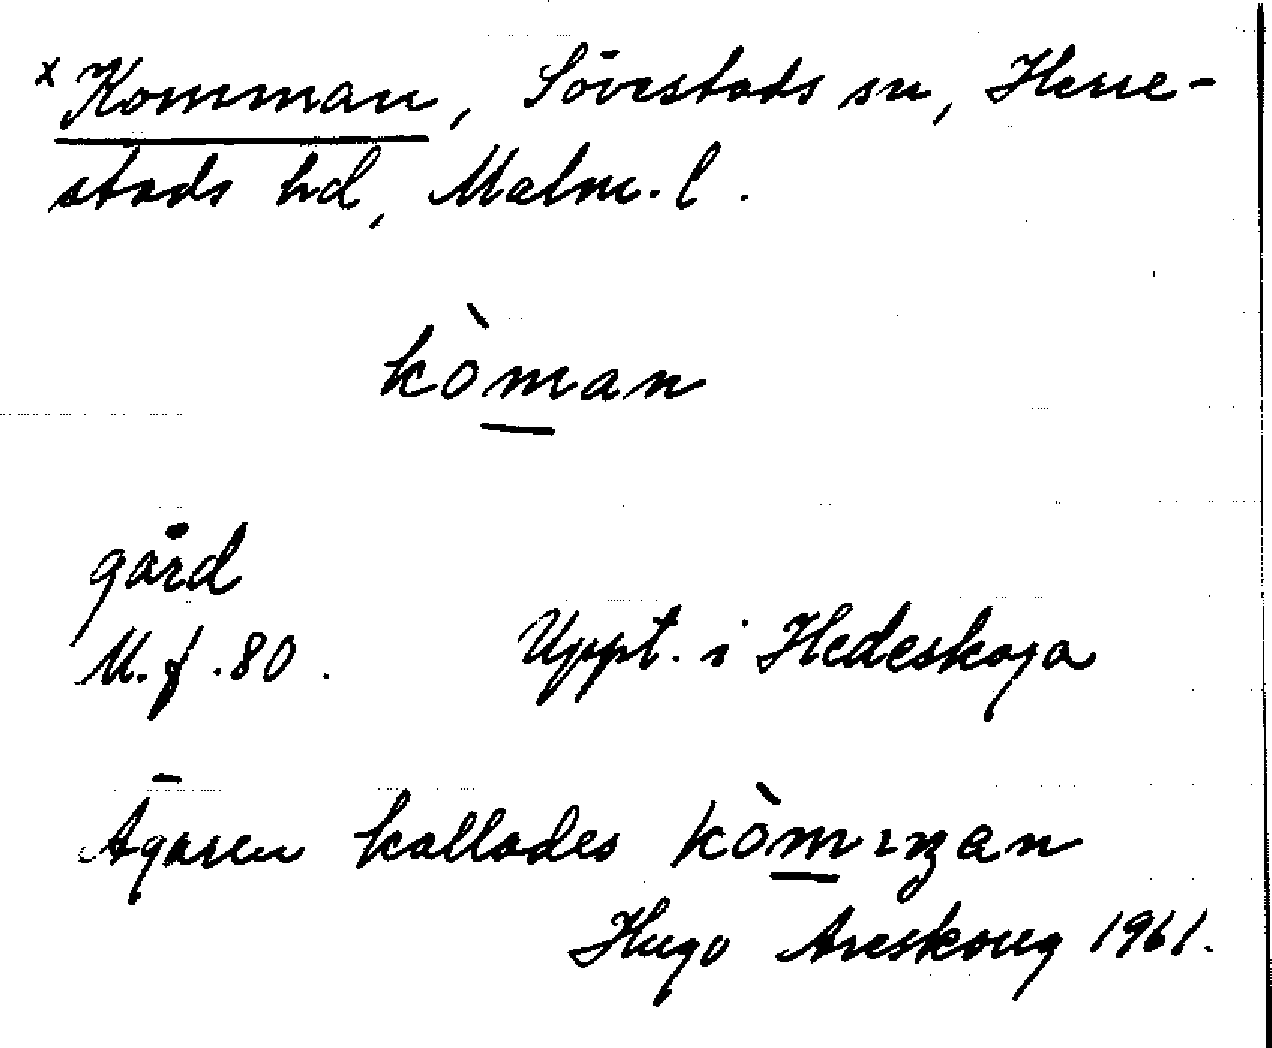 x Komman, Sövestads sn, Herre-
stads hd, Malm. l.
kòman
gård
M. f. 80. Uppt. i Hedeskoga
Ägaren kallades kòmıŋan
Hugo Areskoug 1961.